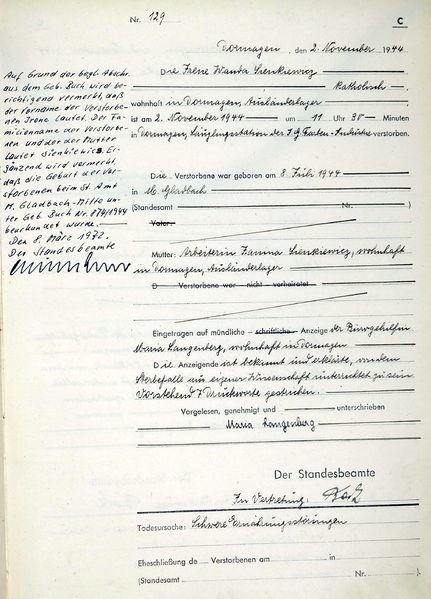 Nr. 129
C
Dormagen, den 2. November 1944
Die Irene Wanda Sienkiewicz
katholisch
wohnhaft in Dormagen, Ausländerlager
ist am 2. November 1944 um 11 Uhr 30 Minuten
in Dormagen, Säuglingsstation der I.G. Farben-Industrie verstorben.
Die Verstorbene war geboren am 8. Juli 1944
in M. Gladbach
(Standesamt Nr. )
Vater:
Mutter: Arbeiterin Janina Sienkiewicz, wohnhaft
in Dormagen, Ausländerlager
D Verstorbene war nicht verheiratet
Eingetragen auf mündliche schriftliche Anzeige der Bürogehilfin
Maria Langenberg, wohnhaft in Dormagen
Die Anzeigende ist bekannt und erklärte, von dem
Sterbefalle aus eigener Wissenschaft unterrichtet zu sein
Vorstehend 7 Druckworte gestrichen.
Vorgelesen, genehmigt und unterschrieben
Maria Langenberg
Der Standesbeamte
In Vertretung:
Todesursache: Schwere Ernährungsstörungen
Eheschließung de Verstorbenen am in
(Standesamt Nr. )
Auf Grund der begl. Abschr.
aus dem Geb. Buch wird be-
richtigend vermerkt, daß
der Vorname der Verstorbe-
nen Irene lautet. Der Fa-
milienname der Verstorbe-
nen und der der Mutter
lautet Sienkiewicz. Er-
gänzend wird vermerkt,
daß die Geburt der Ver-
storbenen beim St. Amt
M. Gladbach-Mitte un-
ter Geb. Buch Nr. 874/1944
beurkundet wurde.
Den 8. März 1972.
Der Standesbeamte